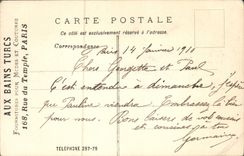 CARTE POSTALE
Ce côté est exclusivement réservé à l'adresse.
Correspondance
AUX BAINS TURCS
168, Rue du Temple, PARIS
Paris 14 Janvier 1911
Chers Georgette et Paul
C'est entendu à dimanche, j'espère
que Pauline viendra. Embrassez la bien
pour nous. Bons baisers de vos
et cousines
Germaine
TÉLÉPHONE 297-79